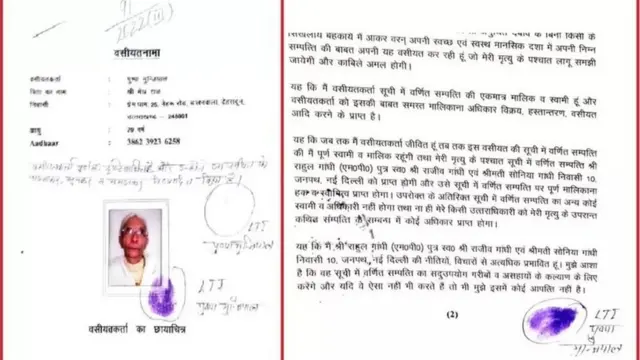 91
2022 (III)
वसीयतनामा
वसीयतकर्ता : पुष्पा मुन्जियाल
पिता का नाम : श्री मेघ राज
निवासी : प्रेम धाम, 25, नेहरू रोड, डालनवाला, देहरादून,
उत्तराखण्ड - 248001
आयु : 79 वर्ष
Aadhaar : 3862 3923 6258
LTI
LTI
वसीयतकर्ता का छायाचित्र
बहकावे में आकर वरन् अपनी स्वच्छ एवं स्वस्थ मानसिक दशा में अपनी निम्न
सम्पत्ति की बाबत अपनी यह वसीयत कर रही हूं जो मेरी मृत्यु के पश्चात लागू समझी
जायेगी और काबिले अमल होगी।
यह कि मैं वसीयतकर्ता सूची में वर्णित सम्पत्ति की एकमात्र मालिक व स्वामी हूं और
वसीयतकर्ता को इसकी बाबत समस्त मालिकाना अधिकार विक्रय, हस्तान्तरण, वसीयत
आदि करने के प्राप्त है।
यह कि जब तक मैं वसीयतकर्ता जीवित हूं तब तक इस वसीयत की सूची में वर्णित सम्पत्ति
की मैं पूर्ण स्वामी व मालिक रहूंगी तथा मेरी मृत्यु के पश्चात सूची में वर्णित सम्पत्ति श्री
राहुल गांधी (एम०पी०) पुत्र स्व० श्री राजीव गांधी एवं श्रीमती सोनिया गांधी निवासी 10,
जनपथ, नई दिल्ली को प्राप्त होगी और उसे सूची में वर्णित सम्पत्ति पर पूर्ण मालिकाना
हक व स्वामित्व प्राप्त होगा। उपरोक्त के अतिरिक्त सूची में वर्णित सम्पत्ति का अन्य कोई
स्वामी व अधिकारी नहीं होगा तथा ना ही मेरे किसी उत्तराधिकारी को मेरी मृत्यु के उपरान्त
कथित सम्पत्ति के सम्बन्ध में कोई अधिकार प्राप्त होगा।
यह कि मैं श्री राहुल गांधी (एम०पी०) पुत्र स्व० श्री राजीव गांधी एवं श्रीमती सोनिया गांधी
निवासी 10, जनपथ, नई दिल्ली की नीतियों, विचारों से अत्यधिक प्रभावित हूं। मुझे आशा
है कि वह सूची में वर्णित सम्पत्ति का सदुउपयोग गरीबों व असहायों के कल्याण के लिए
करेंगे और यदि वे ऐसा नहीं भी करते हैं तो भी मुझे इसमें कोई आपत्ति नहीं है।
(2)
LTI
पुष्पा
मुन्जियाल